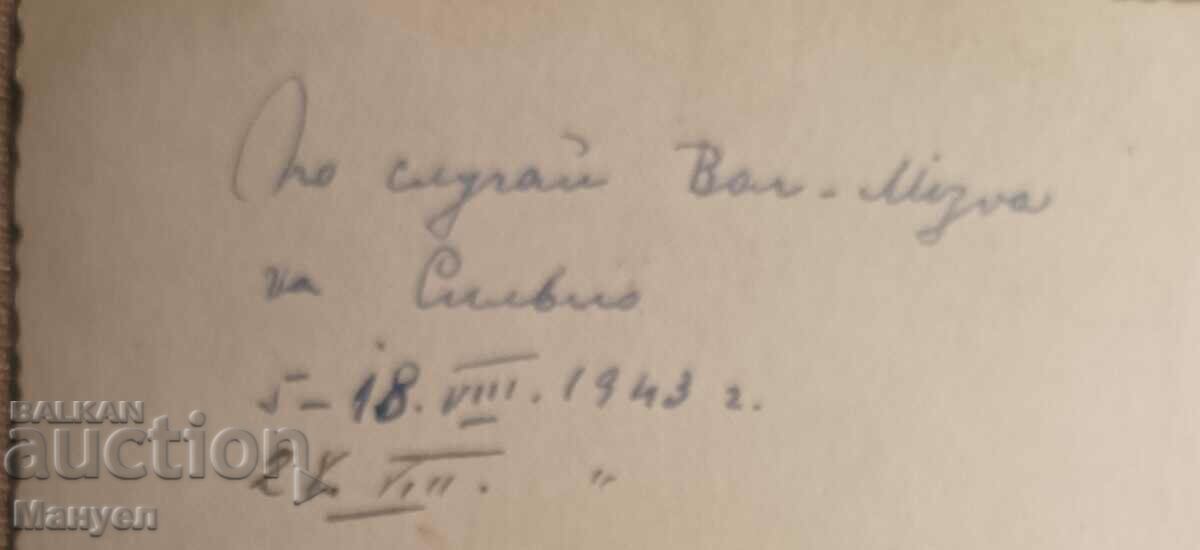 По случай Бал-Мізва
на Силвио
5-18. VIII. 1943 г.
VIII. "
BALKAN
auction
Мануел